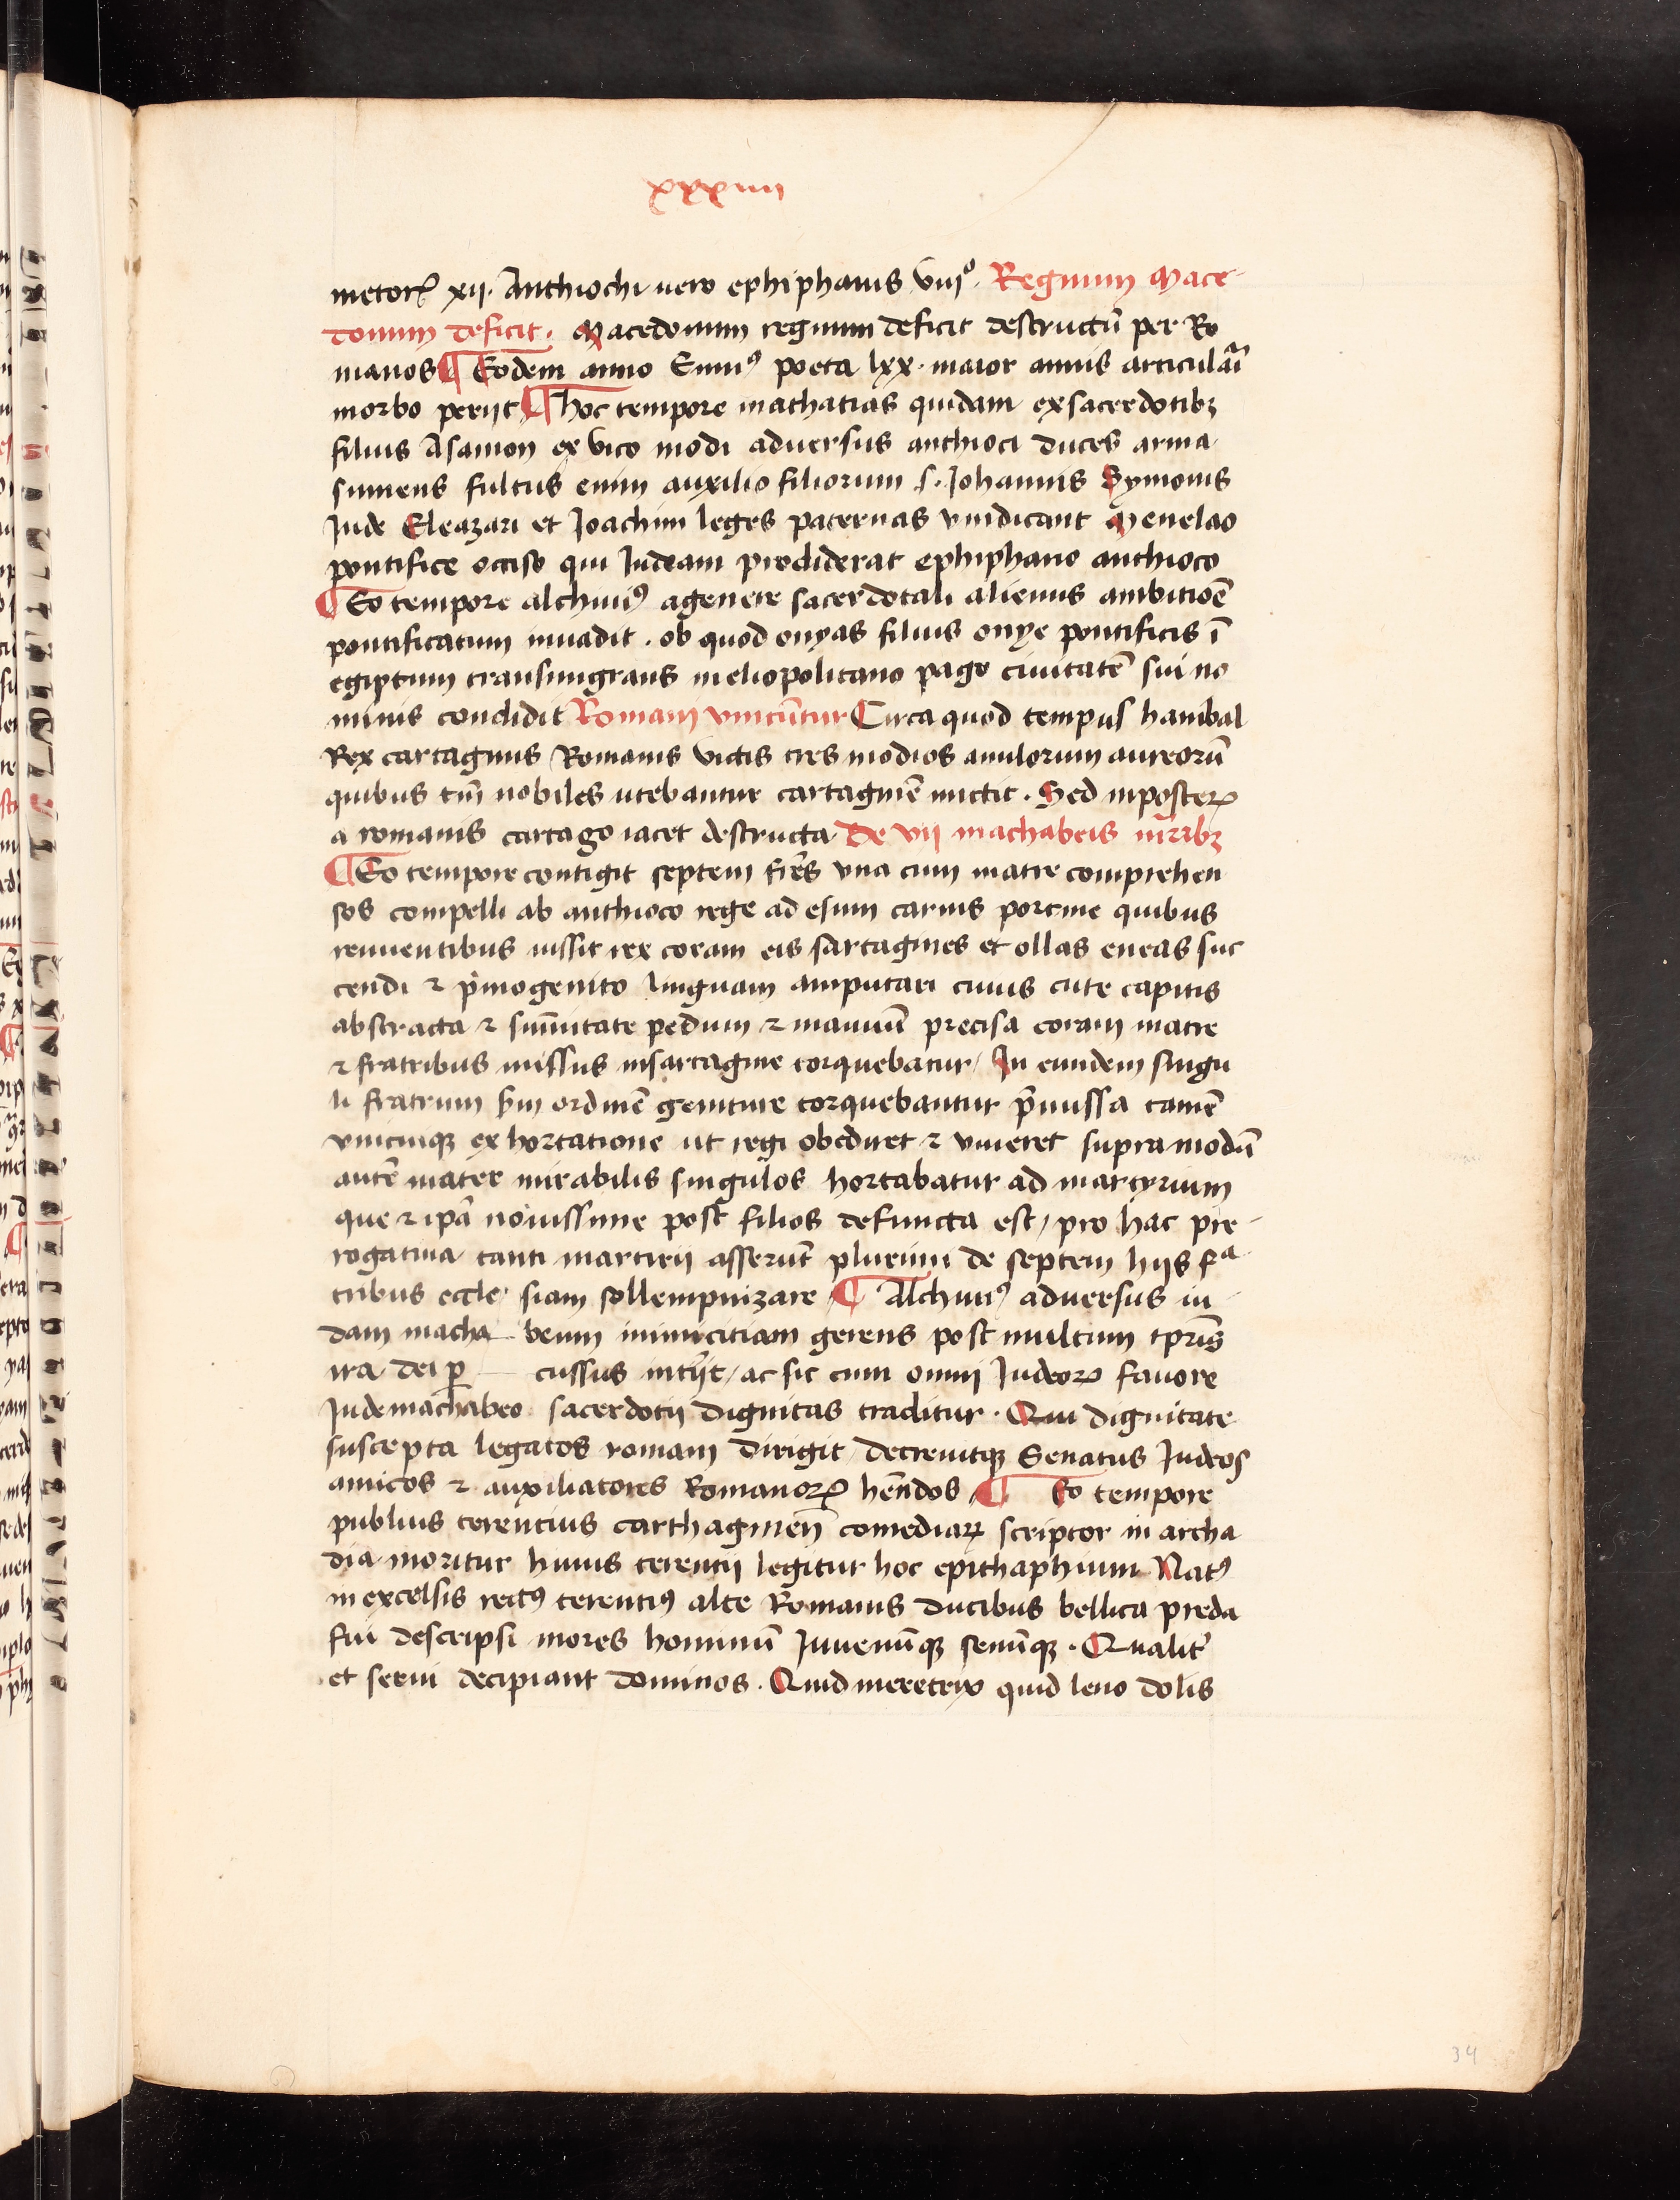 xxxiiii
metorꝝ xij. Anthiochi uero ephiphanis viijº. Regnum Mace-
donum deficit. Macedonum regnum deficit destructū per Ro
manos ¶ Eodem anno Enniꝰ poeta lxx. maior annis articulāi
morbo perijt ¶ hoc tempore mathatias quidam ex sacerdotibꝫ
filius Asamon ex vico modi aduersus anthioci duces arma
sumens fultus enim auxilio filiorum .s. Iohannis Symonis
Iude Eleazari et Ioachim leges paternas vindicant Menelao
pontifice occiso qui Iudeam prodiderat ephiphano anthioco
¶ Eo tempore alchimꝰ a genere sacerdotali alienus ambitiōe
pontificatum inuadit . ob quod onyas filius onye pontificis ī
egiptum transmigrans in eliopolitano pago ciuitatē sui no
minis condidit Romani vincūntur Circa quod tempus hanibal
Rex cartaginis Romanis victis tres modios anulorum aureorū
quibus tm̄ nobiles utebantur cartaginē mittit . Sed in posterꝝ
a romanis cartago iacet destructa De vij machabeis mr̄ibꝫ
¶ Eo tempore contigit septem fr̄es vna cum matre comprehen
sos compelli ab anthioco rege ad esum carnis porcine quibus
renuentibus iussit rex coram eis sartagines et ollas eneas suc
cendi ⁊ p̄mogenito linguam amputari cuius cute capitis
abstracta ⁊ sum̄itate pedum ⁊ manuū precisa coram matre
⁊ fratribus missus in sartagine torquebatur / In eundem singu
li fratrum scdm ordinē geniture torquebantur p̄missa tamē
vnicuiqꝫ exhortatione ut regi obediret ⁊ viueret supra modū
autē mater mirabilis singulos hortabatur ad martyrium
que ⁊ ip̄a nouissime post filios defuncta est / pro hac pre-
rogatiua tanti martirij asserūt plurimi de septem hijs fᵃ-
tribus eccle siam sollempnizare / ¶ Alchimꝰ aduersus iu-
dam macha beum inimicitiam gerens post multum tp̄ris
ira dei ꝑ cussus intijt / ac sic cum omni Iudeorꝝ fauore
Iude machabeo sacerdotij dignitas traditur . Qui dignitate
suscepta legatos romam dirigit / decreuitqꝫ Senatus Iudeos
amicos ⁊ auxiliatores Romanorꝝ hēndos / ¶ Eo tempore
publius terencius carthaginen̄ comediarꝝ scriptor in archa
dia moritur huius terentij legitur hoc epithaphium Natꝰ
in excelsis rectꝰ terentiꝰ alte Romanis ducibus bellica preda
fui descripsi mores hominū Iuuenūqꝫ senūqꝫ . Qualit̄
et serui decipiant dominos . Quid meretrix quid leno dolis
34